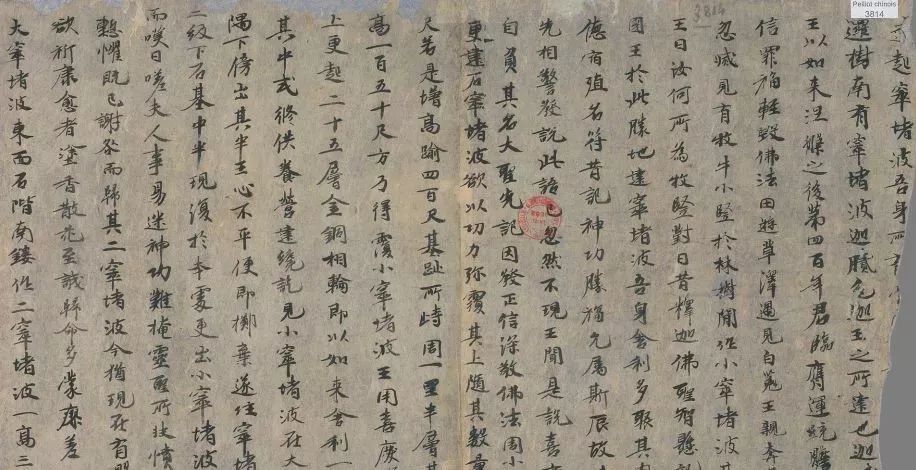 起窣堵波吾身所有
邏樹南有窣堵波迦膩色迦王之所建也迦
王以如来涅槃之後第四百年君臨膺運統贍
信罪福軽毀佛法田將草澤遇見白菟王親奔
忽滅見有牧牛小竪於林樹間作小窣堵波其
王曰汝何所為牧竪對曰昔釋迦佛聖智懸
國王於此勝地建窣堵波吾身舍利多聚其内
德宿殖名符昔記神功勝福允属斯辰故
先相警發說此語已忽然不現王聞是說喜
自負其名大聖先記因發正信深敬佛法周小
更建石窣堵波欲以功力弥覆其上隨其數量
尺若是增高踰四百尺基趾所峙周一里半層
高一百五十尺方乃得覆小窣堵波王用喜慶
上更起二十五層金銅相輪即以如来舍利一
其中式修供養營建纔訖見小窣堵波在大
隅下傍出其半王心不平便即擲棄遂住窣堵
二級下石基中半現復於本處更出小窣堵波
而嘆曰嗟夫人事易迷神功難掩靈聖所扶憤
慙懼既已謝咎而歸其二窣堵波今猶現在有
欲祈康愈者塗香散花至誠歸命多蒙瘳差
大窣堵波東面石階南鏤作二窣堵波一高三
3814
Pelliot chinois
3814